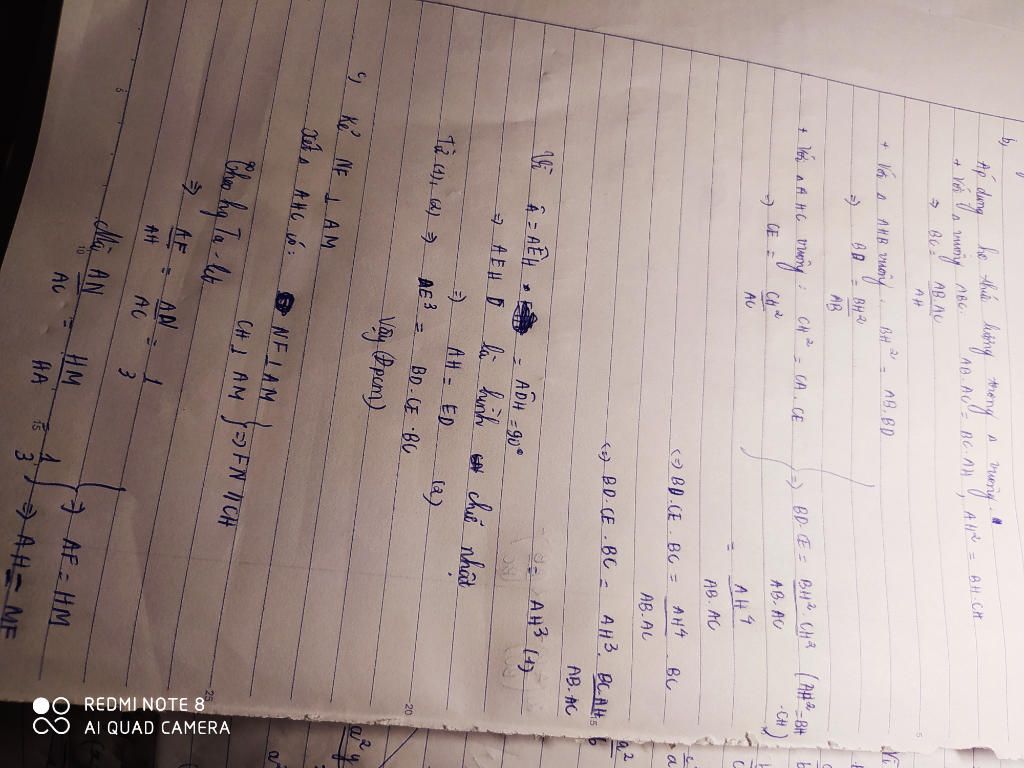 b,
Áp dụng hệ thức lượng trong Δ vuông.
+ Với Δ vuông ABC. AB.AC = BC.AH, AH² = BH.CH
⇒ BC = AB.AC / AH
+ Với Δ AHB vuông. BH² = AB.BD
⇒ BD = BH² / AB
+ Với Δ AHC vuông: CH² = CA.CE
⇒ CE = CH² / AC
} ⇒ BD.CE = BH².CH² / AB.AC (AH² = BH.CH)
= AH⁴ / AB.AC
⇔ BD.CE.BC = AH⁴.BC / AB.AC
⇔ BD.CE.BC = AH³. BC.AH / AB.AC
= AH³ (1)
Vì Â = AÊH = AD̂H = 90°
⇒ AEHD là hình chữ nhật
⇒ AH = ED (2)
Từ (1), (2) ⇒ DE³ = BD.CE.BC
Vậy (Đpcm)
c, Kẻ NF ⊥ AM
Xét Δ AHC có: NF ⊥ AM
CH ⊥ AM } ⇒ FN // CH
Theo hq Ta-lét
⇒ AF / AH = AN / AC = 1 / 3
Mà AN / AC = HM / HA = 1 / 3 } ⇒ AF = HM
⇒ AH = MF
REDMI NOTE 8
AI QUAD CAMERA